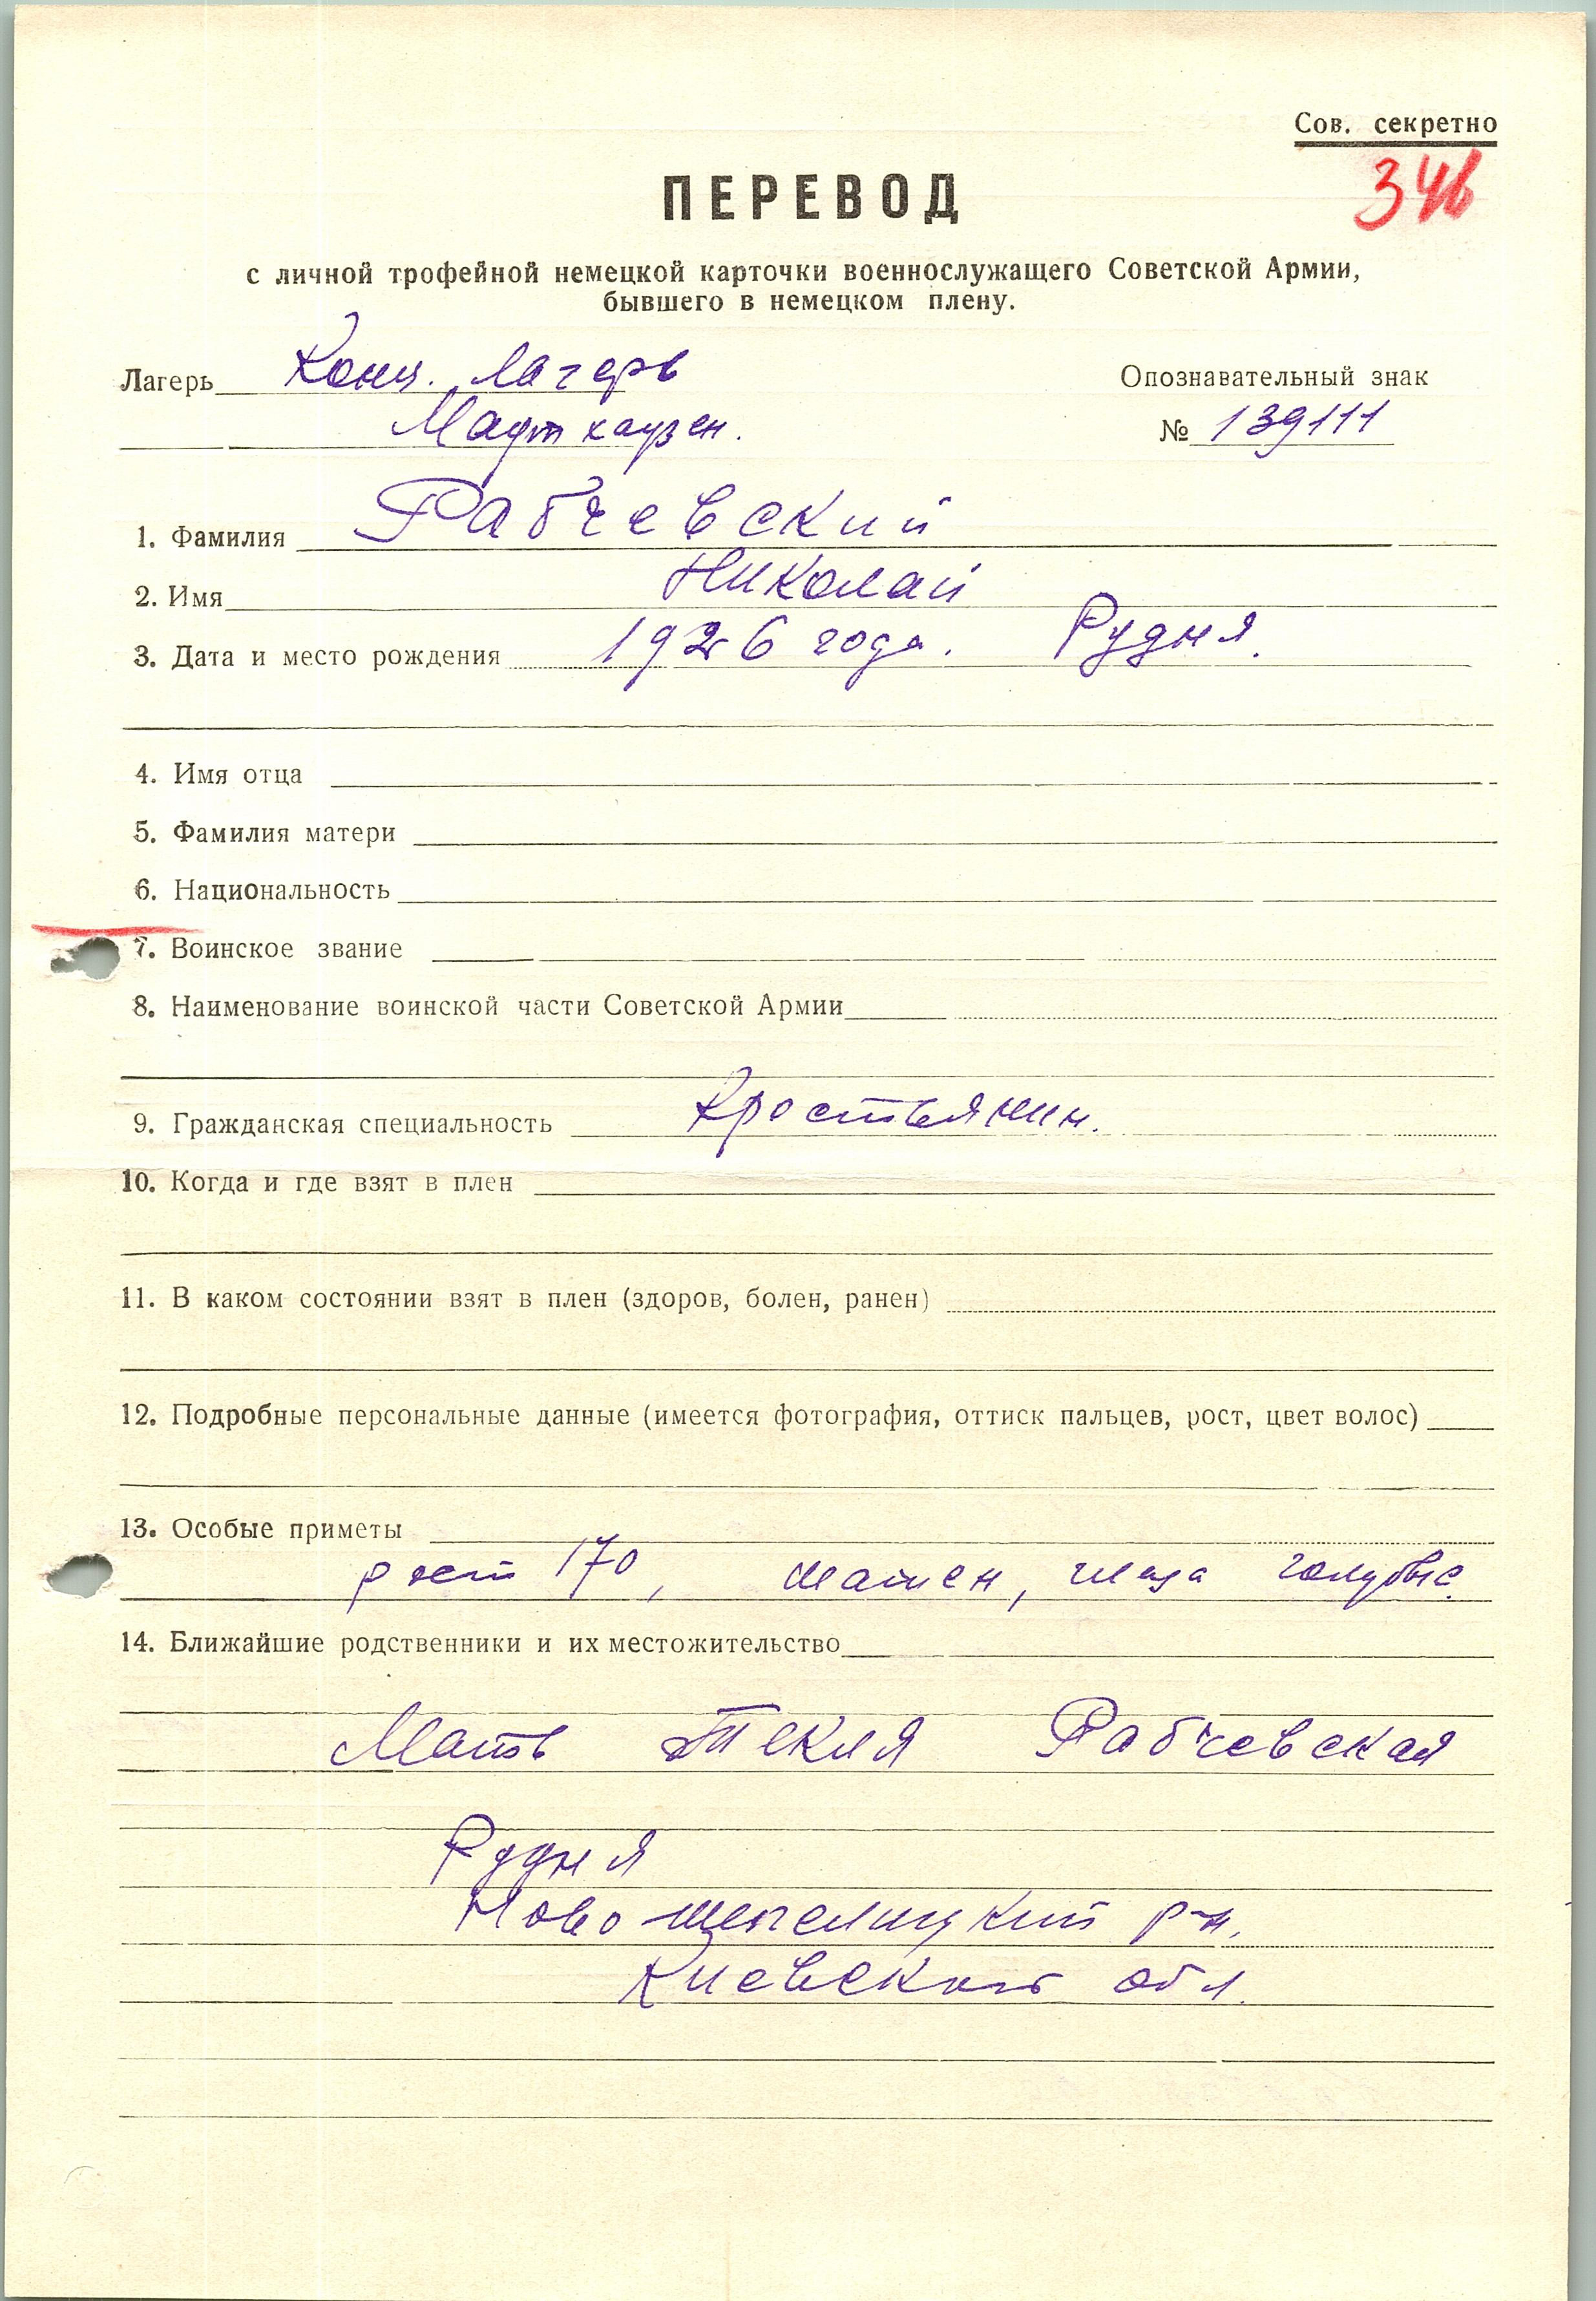 Сов. секретно
34в
ПЕРЕВОД
с личной трофейной немецкой карточки военнослужащего Советской Армии,
бывшего в немецком плену.
Лагерь Конц. Лагерь Опознавательный знак
Маутхаузен. № 139111
1. Фамилия Рабчевский
2. Имя Николай
3. Дата и место рождения 1926 года. Рудня.
4. Имя отца
5. Фамилия матери
6. Национальность
7. Воинское звание
8. Наименование воинской части Советской Армии
9. Гражданская специальность Крестьянин.
10. Когда и где взят в плен
11. В каком состоянии взят в плен (здоров, болен, ранен)
12. Подробные персональные данные (имеется фотография, оттиск пальцев, рост, цвет волос)
13. Особые приметы
рост 170, шатен, глаза голубые.
14. Ближайшие родственники и их местожительство
Мать Текля Рабчевская
Рудня
Ново Шепелицкий р-н.
Киевской обл.